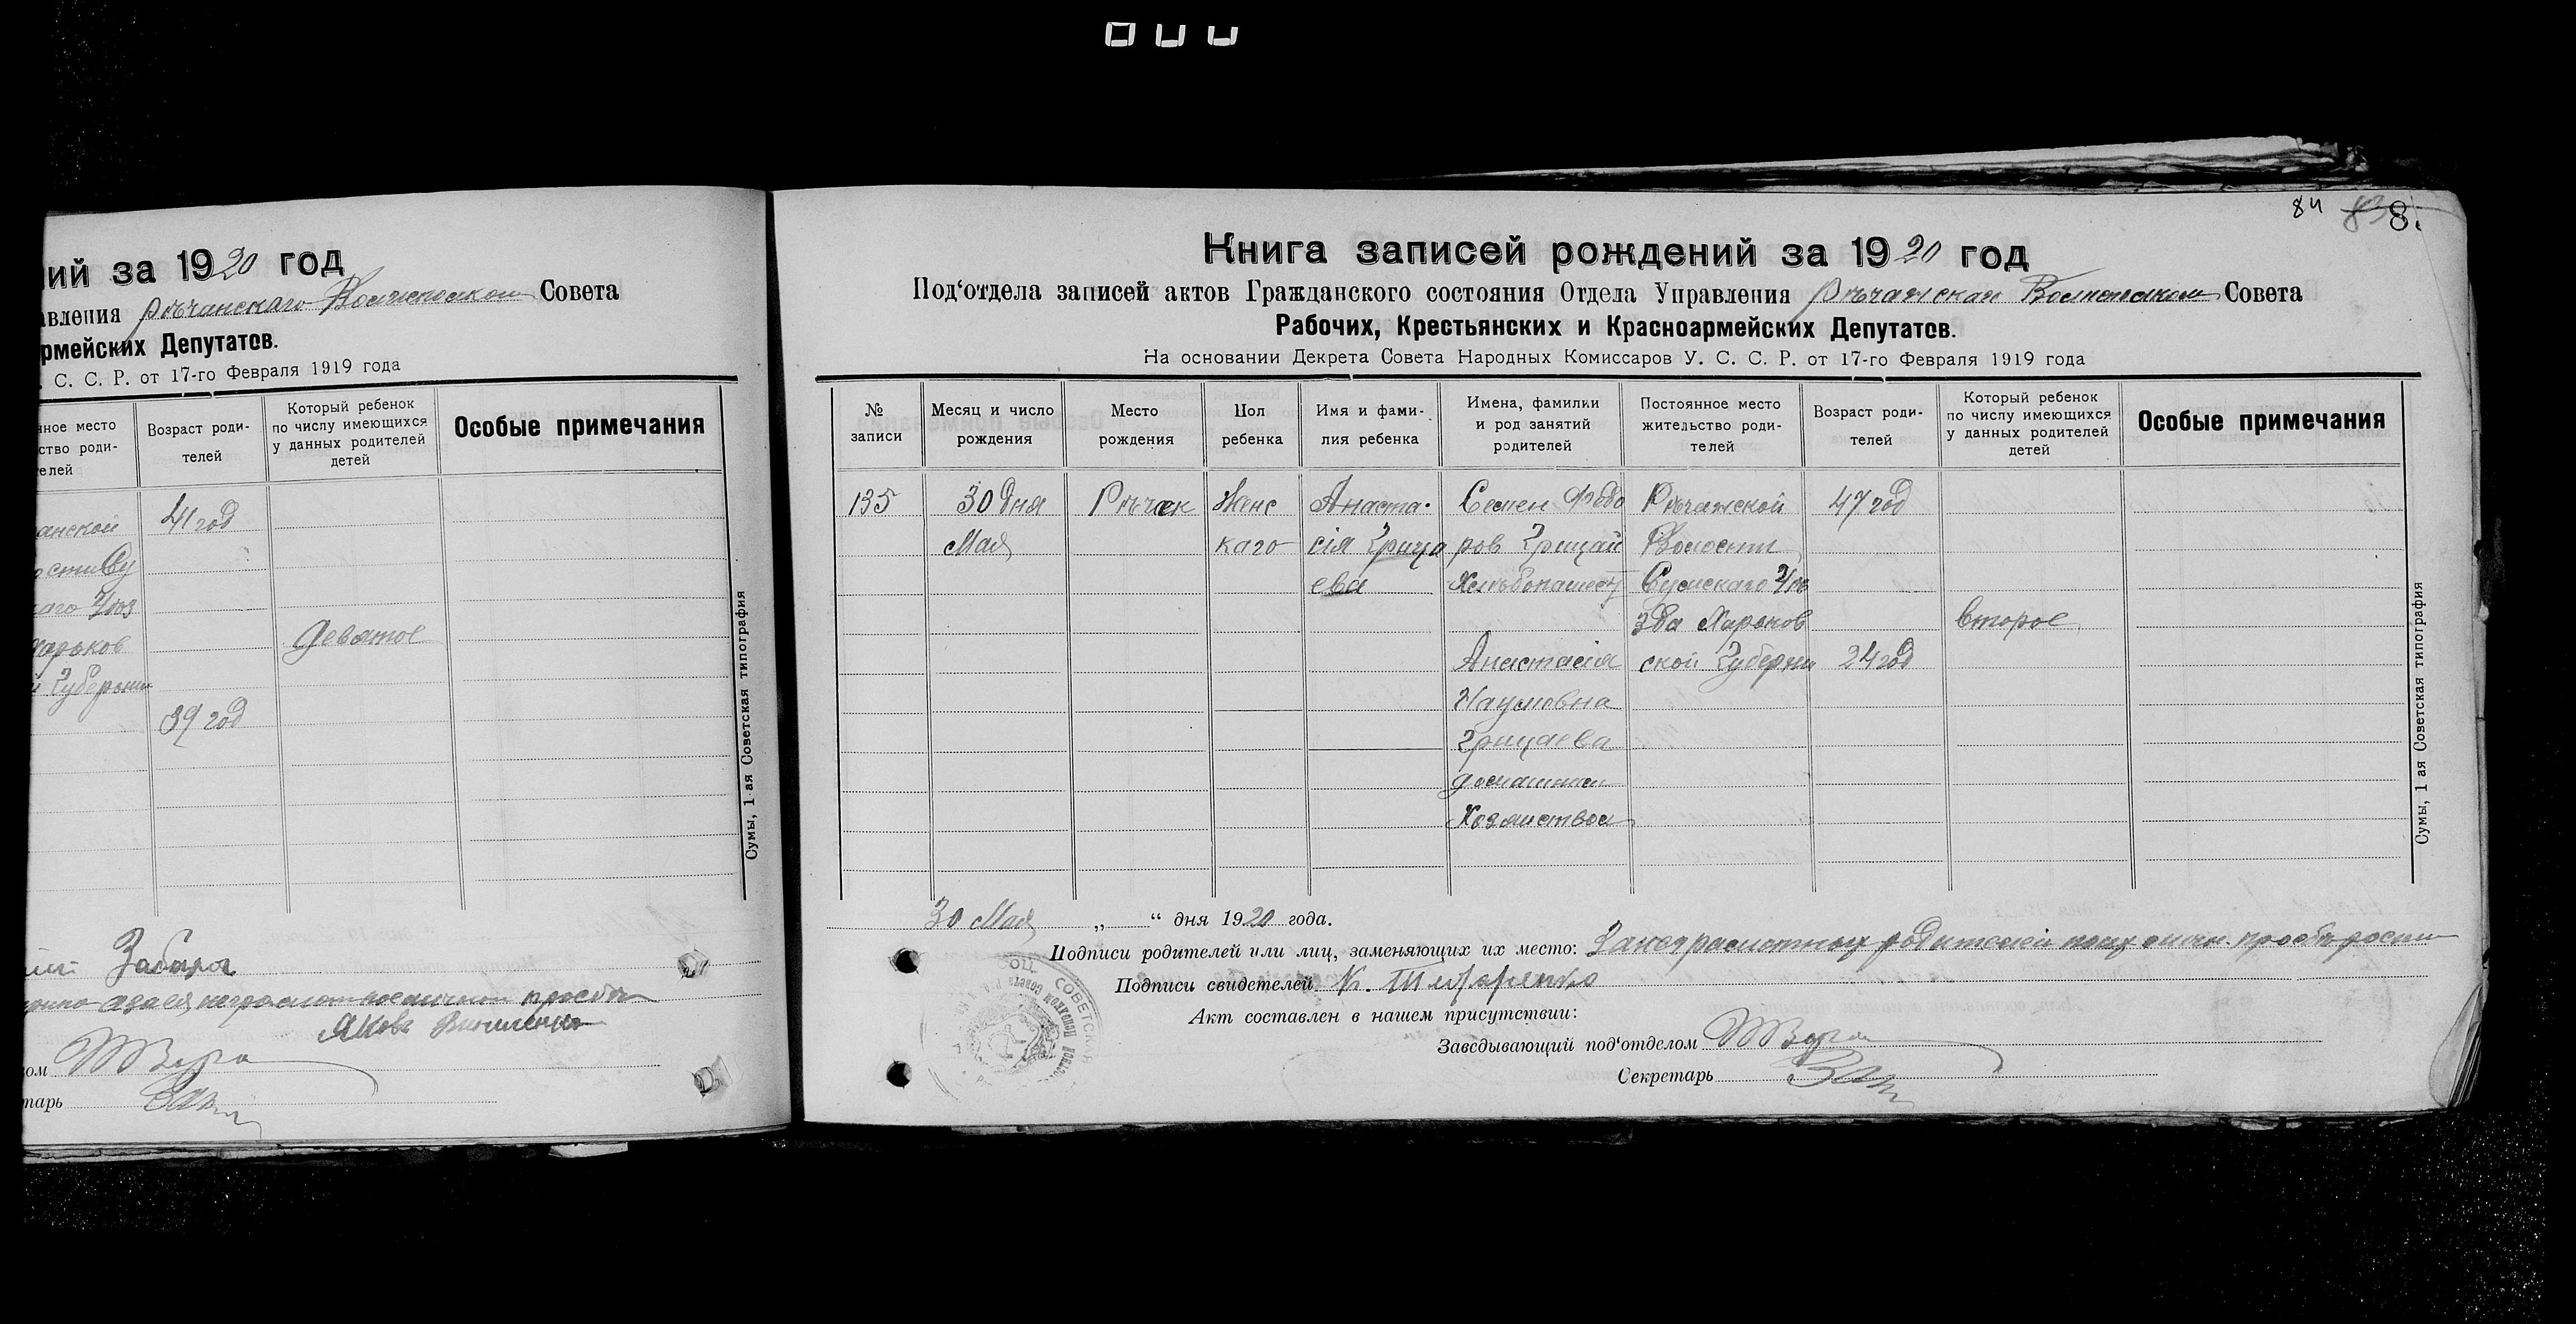 ий за 1920 год
авления Рѣчанскаго Волисполком Совета
рмейских Депутатов.
. С. С. Р. от 17-го Февраля 1919 года
нное место
ство роди-
телей
Возраст роди-
телей
Который ребенок
по числу имеющихся
у данных родителей
детей
Особые примечания
анской
41 год
ости Су
каго Уѣз
Харьков
Девятое
й Губерни
39 год
Сумы, 1-ая Советская типография
Забара
неграмотное личной просьбы
Яков
ом
тарь
84 83 8.
Книга записей рождений за 1920 год
Под‘отдела записей актов Гражданского состояния Отдела Управления Рѣчанскаго Волисполком Совета
Рабочих, Крестьянских и Красноармейских Депутатов.
На основании Декрета Совета Народных Комиссаров У. С. С. Р. от 17-го Февраля 1919 года
№
записи
Месяц и число
рождения
Место
рождения
Пол
ребенка
Имя и фами-
лия ребенка
Имена, фамилии
и род занятий
родителей
Постоянное место
жительство роди-
телей
Возраст роди-
телей
Который ребенок
по числу имеющихся
у данных родителей
детей
Особые примечания
135 30 дня Рѣчек Женс Анаста- Семен Федо Рѣчанской 47 год
Мая каго сія Грица ров Грицай Волости
ева Хлѣбопашест Сумскаго Уѣ
зда Харьков второе
Анастасія ской Губерни 24 год
Наумовна
Грицаева
домашнем
Хозяиства
Сумы, 1 ая Советская типография
30 Мая „ “ дня 1920 года.
Подписи родителей или лиц, заменяющих их место: За неграмотных родителей по их личн. просьбѣ роспи
Подписи свидетелей К.
Акт составлен в нашем присутствии:
Заведывающий под‘отделом
Секретарь
СОВЕТСКАЯ